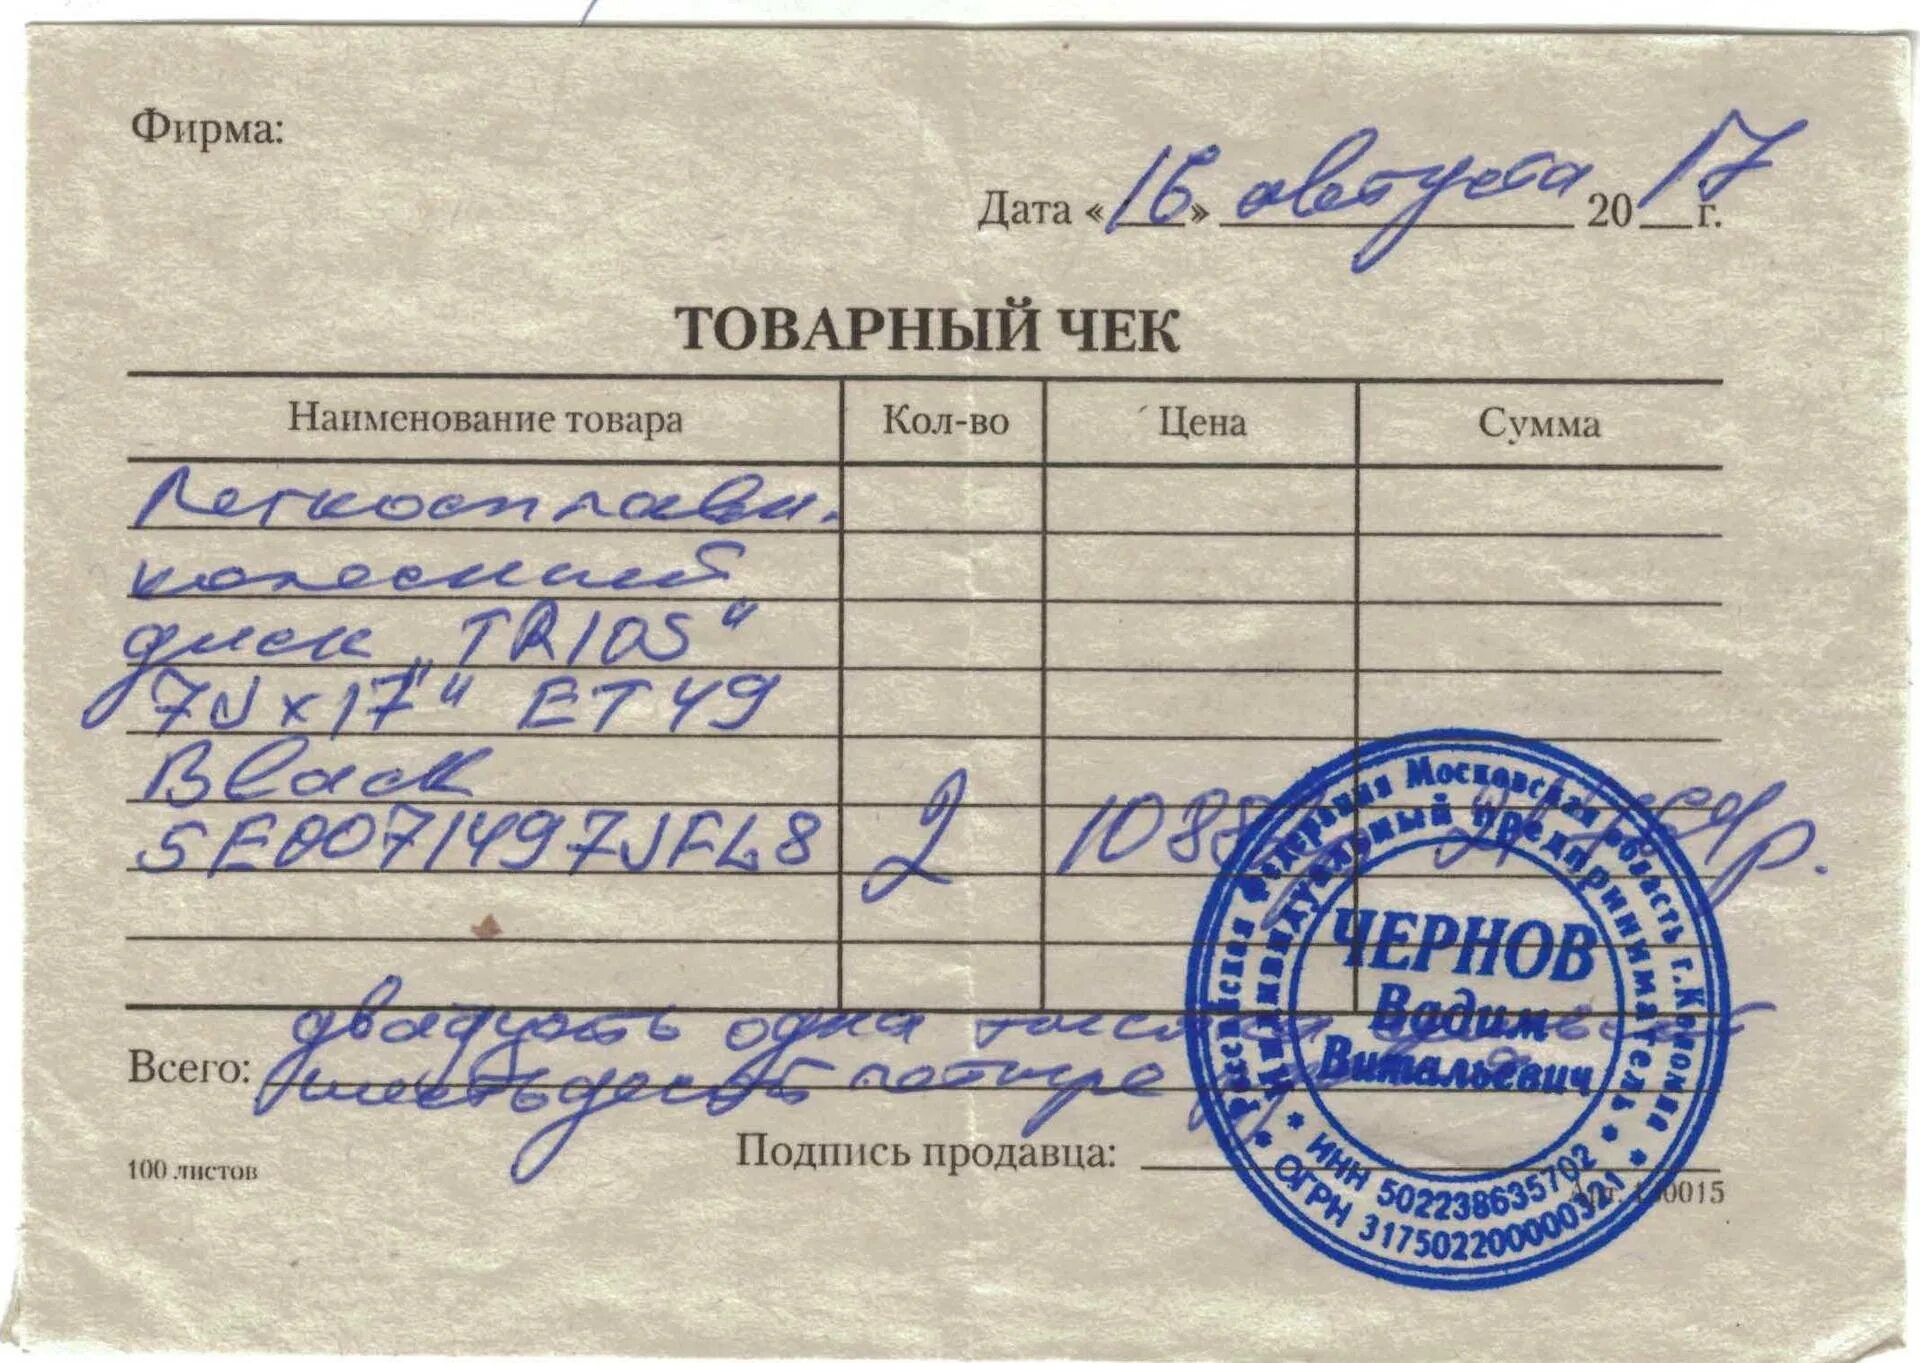 Фирма:
Дата «16» августа 2017 г.
ТОВАРНЫЙ ЧЕК
Наименование товара Кол-во Цена Сумма
Легкосплавн.
колесный
диск "TR105"
7J x 17" ET 49
Black
SE00071497JFL8 2
Всего: двадцать одна тысяча
шестьдесят четыре
Подпись продавца:
100 листов
Российская Федерация Московская область г.Коломна
Индивидуальный предприниматель
ЧЕРНОВ
Вадим
Витальевич
* ИНН 502238635702 *
* ОГРН 317502200000321 *